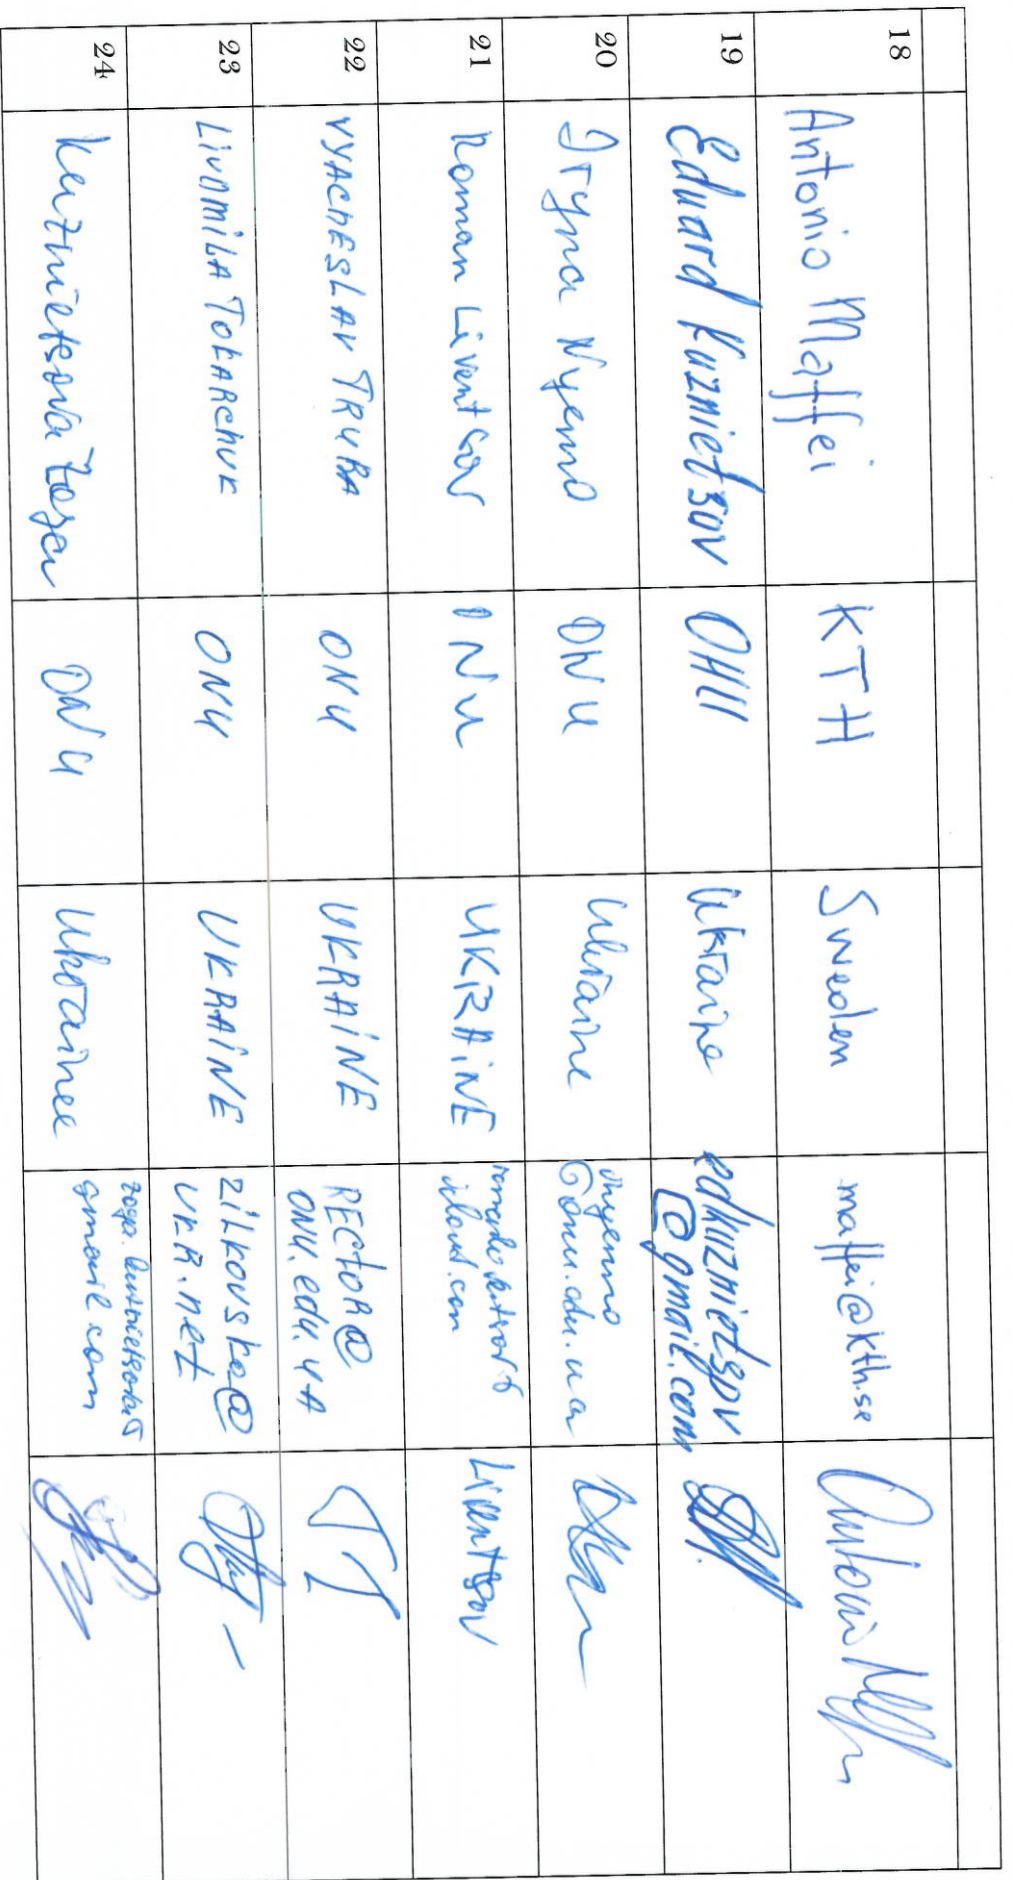 18 Antonio Maffei KTH Sweden maffei@kth.se
19 Eduard Kuznietsov Ukraine edkuznietsov
@gmail.com
20 Iryna Nyenno ONU Ukraine
@onu.edu.ua
21 Roman Liventsov ONU UKRAINE
icloud.com Liventsov
22 VYACHESLAV TRUBA ONU UKRAINE RECTOR@
ONU.edu.UA
23 LiUDMILA TOKARCHUK ONU UKRAINE
UKR.net
24 Kuznietsova ONU
gmail.com